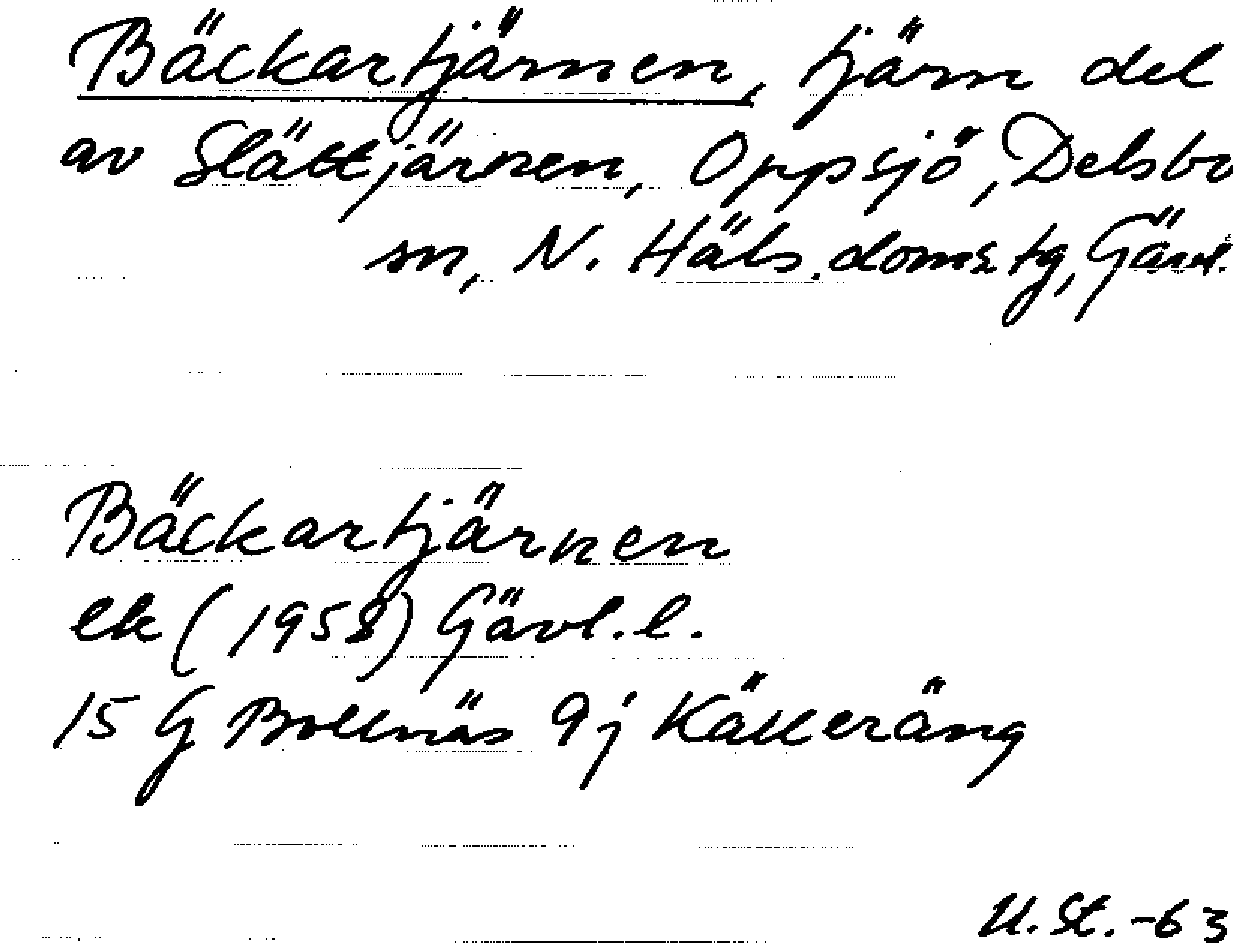 Bäckartjärnen, tjärn del
av Slättjärnen, Oppsjö, Delsbo
sn, N. Häls. doms tg, Gävl.
Bäckartjärnen
ek (1958) Gävl.l.
15 G Bollnäs 9j Källeräng
U.St.-63